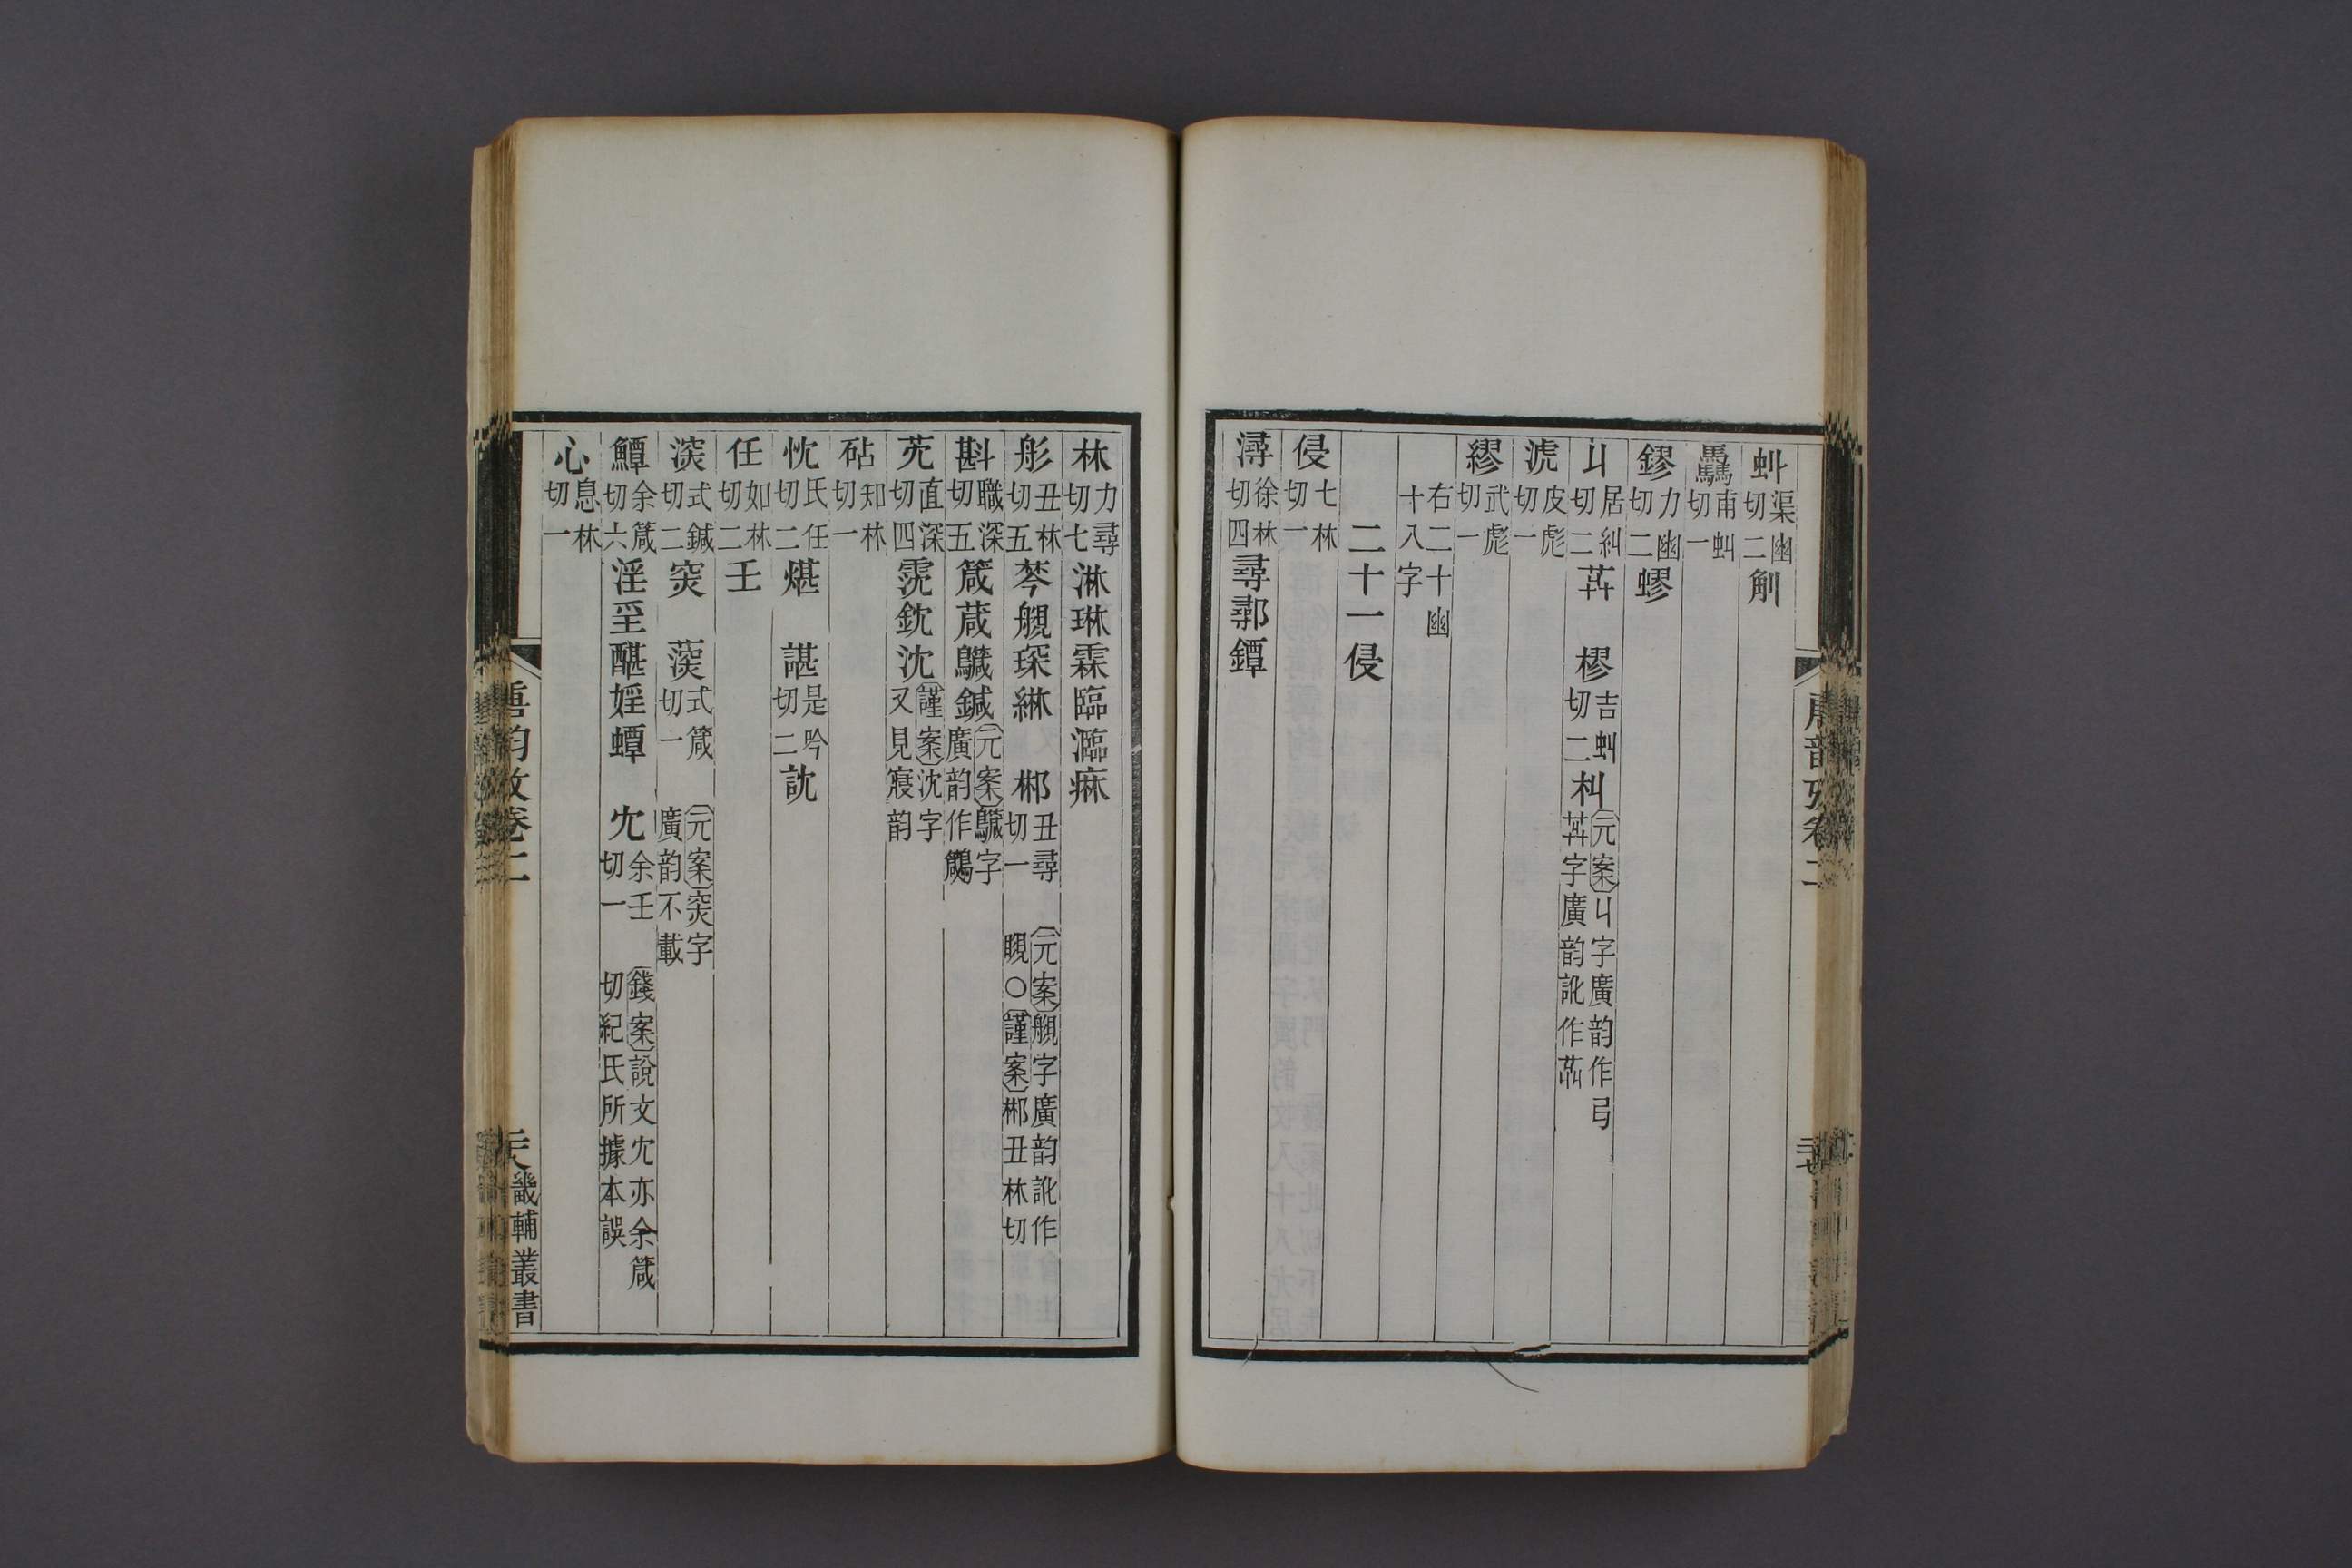 虯渠幽切二觓
驫甫虯切一
鏐力幽切二蟉
丩居糾切二茻 樛吉虯切二朻
元案丩字廣韵作弓
字廣韵訛作
淲皮彪切一
繆武彪切一
右二十幽
十八字
二十一侵
侵七林切一
潯徐林切四尋鄩鐔
唐韵攷卷二
林力尋切七淋琳霖臨瀶痳
彤丑林切五棽舰琛綝 郴丑尋切一
元案舰字廣韵訛作
覞○謹案郴丑林切
斟職深切五箴葴鱵鍼
元案鱵字
廣韵作鷉
茺直深切四霃鈂沈
謹案沈字
又見寑韵
砧知林切一
忱氏任切二煁 諶是吟切二訦
任如林切二壬
深式鍼切二突 葠式箴切一
元案突字
廣韵不載
鱏余箴切六淫䍿醓婬蟫 冘余壬切一
錢案說文冘亦余箴
切紀氏所據本誤
心息林切一
唐韵攷卷二
畿輔叢書